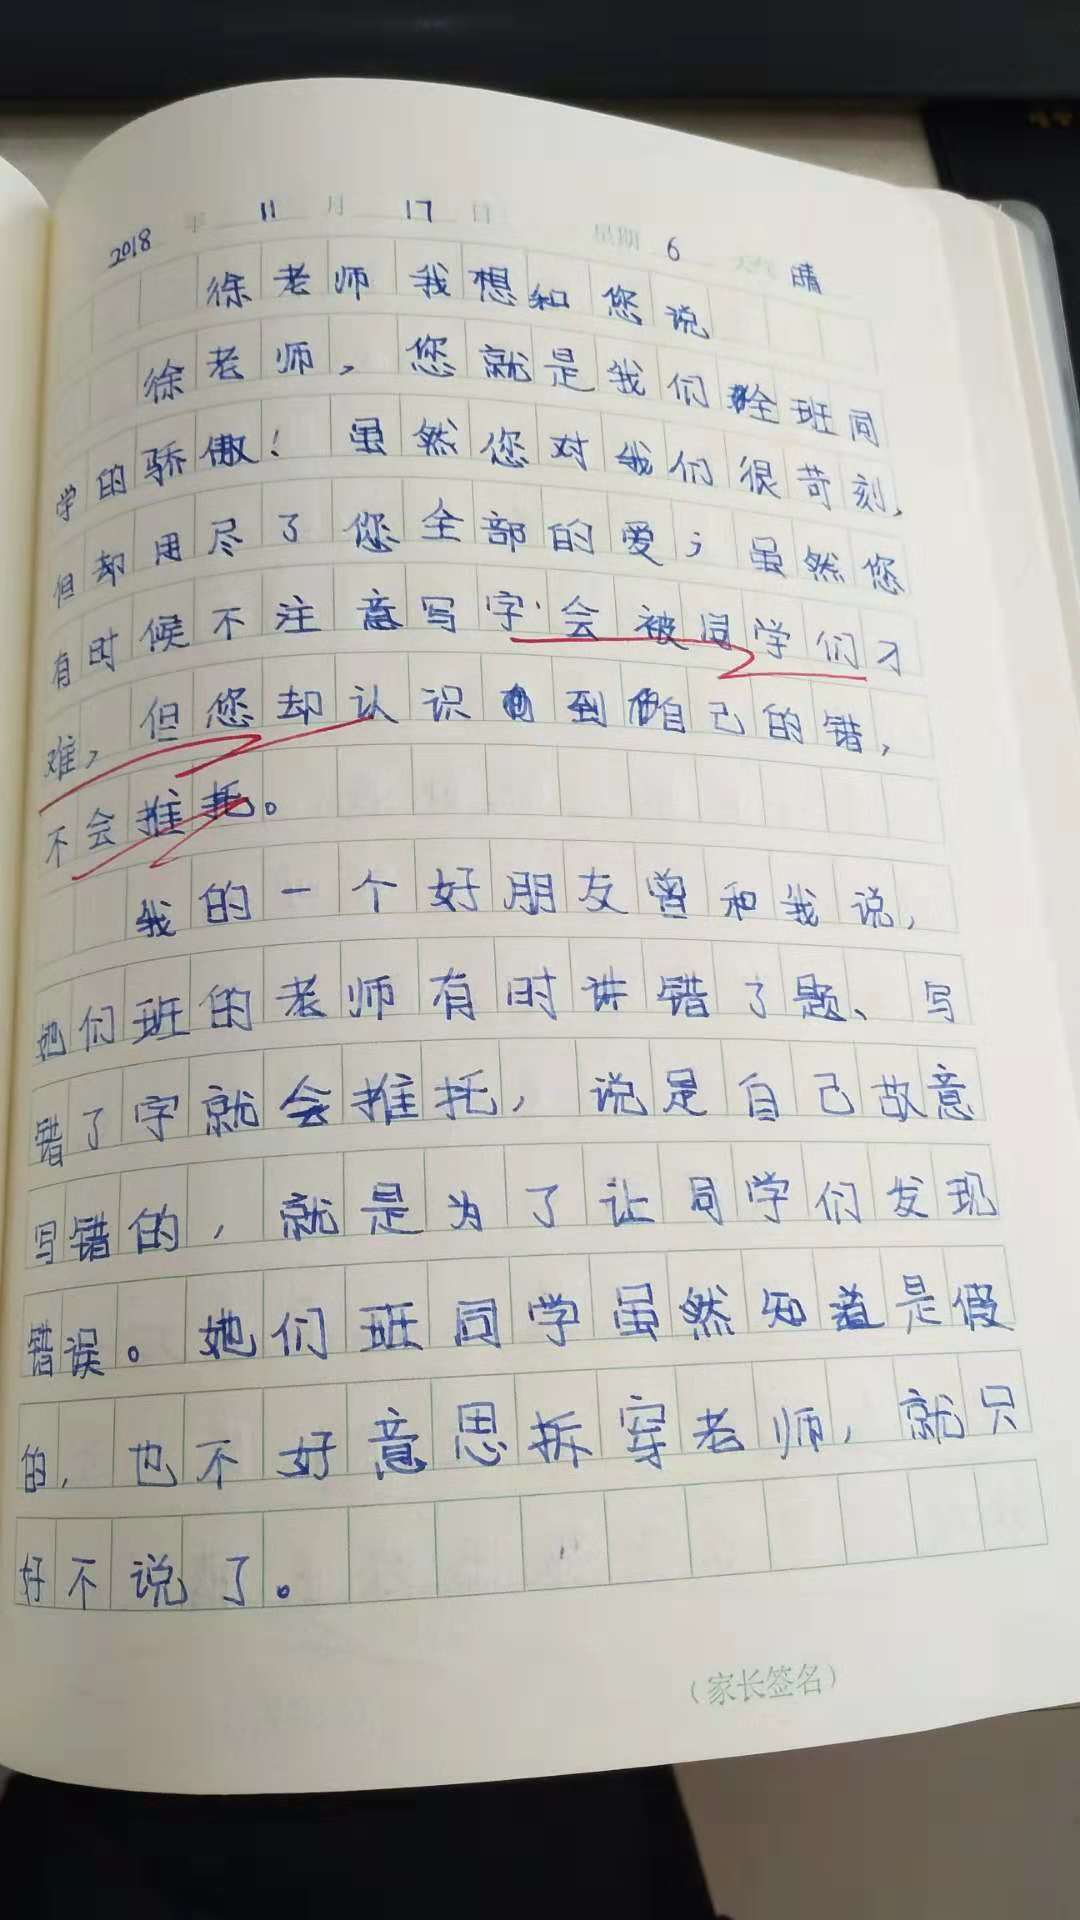 2018 年 11 月 17 日 星期 6 天气 晴
徐老师我想和您说
徐老师，您就是我们全班同
学的骄傲！虽然您对我们很苛刻，
但却用尽了您全部的爱；虽然您
有时候不注意写字会被同学们刁
难，但您却认识到自己的错，
不会推托。
我的一个好朋友曾和我说，
她们班的老师有时讲错了题、写
错了字就会推托，说是自己故意
写错的，就是为了让同学们发现
错误。她们班同学虽然知道是假
的，也不好意思拆穿老师，就只
好不说了。
（家长签名）